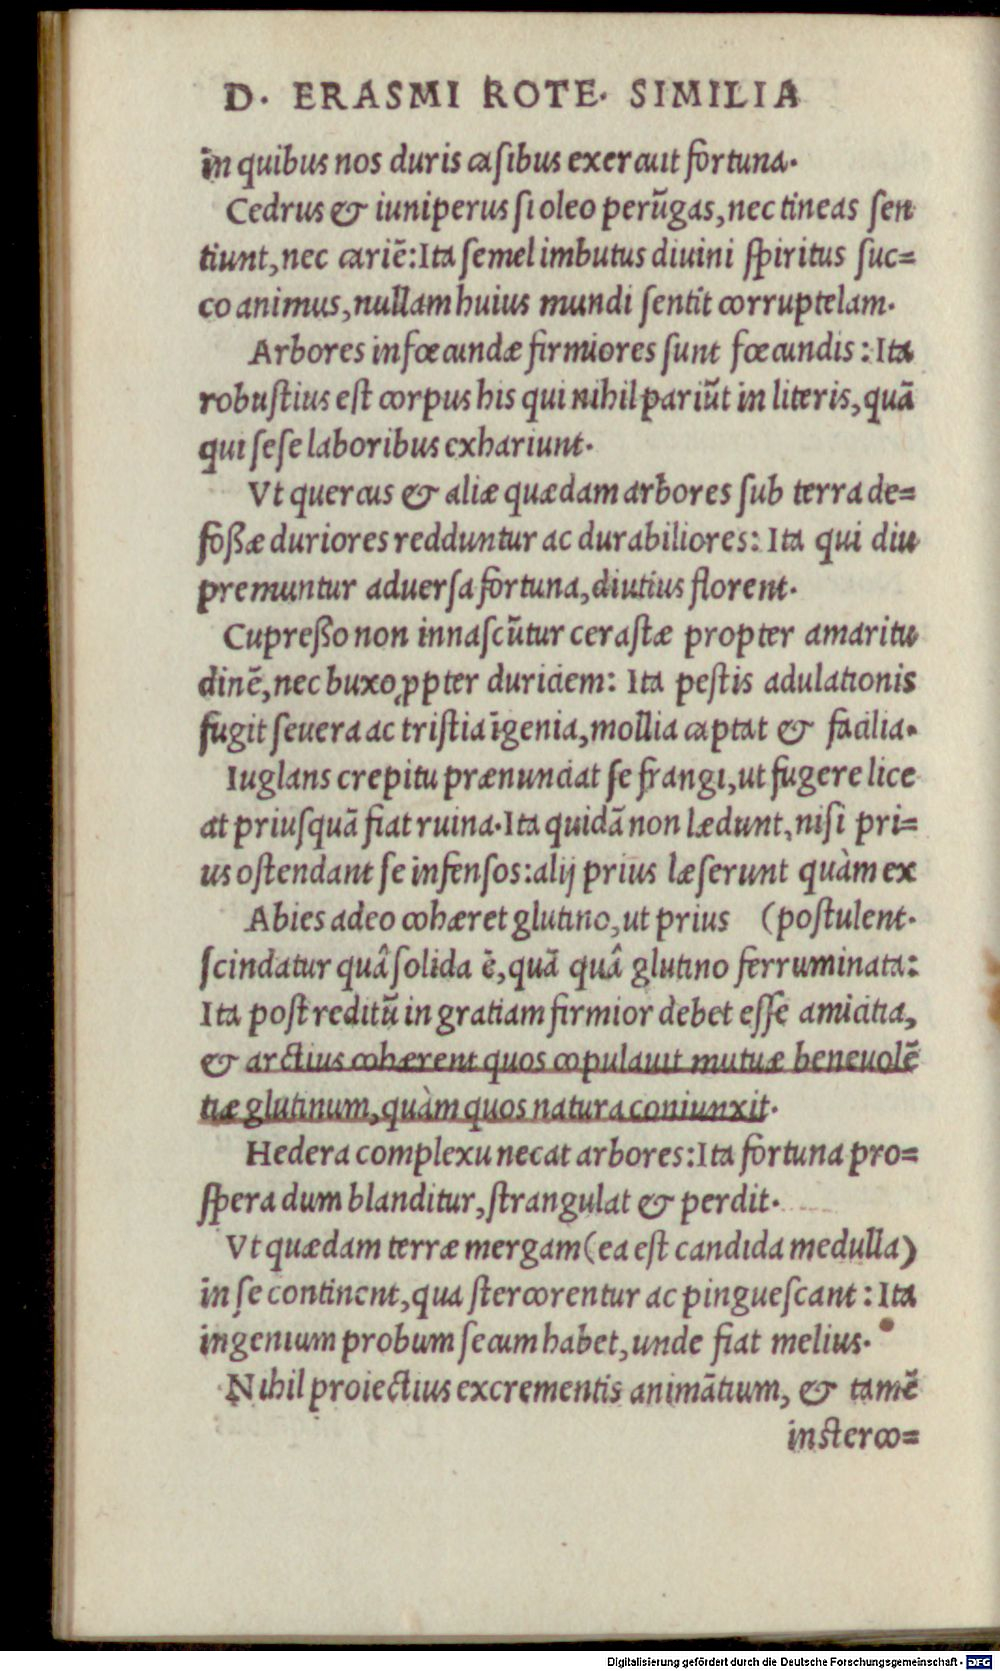 D. ERASMI ROTE. SIMILIA
in quibus nos duris casibus exercuit fortuna.
Cedrus & iuniperus si oleo perũgas, nec tineas sen
tiunt, nec cariẽ: Ita semel imbutus diuini spiritus suc=
co animus, nullam huius mundi sentit corruptelam.
Arbores infœcundæ firmiores sunt fœcundis: Ita
robustius est corpus his qui nihil pariũt in literis, quã
qui sese laboribus exhariunt.
Vt quercus & aliæ quædam arbores sub terra de=
foßæ duriores redduntur ac durabiliores: Ita qui diu
premuntur aduersa fortuna, diutius florent.
Cupreßo non innascũtur cerastæ propter amaritu
dinẽ, nec buxo ꝓpter duriciem: Ita pestis adulationis
fugit seuera ac tristia ĩgenia, mollia captat & facilia.
Iuglans crepitu prænunciat se frangi, ut fugere lice
at priusquã fiat ruina. Ita quidã non lædunt, nisi pri=
us ostendant se infensos: alij prius læserunt quàm ex
Abies adeo cohæret glutino, ut prius (postulent.
scindatur quâ solida ẽ, quã quâ glutino ferruminata:
Ita post reditũ in gratiam firmior debet esse amicitia,
& arctius cohærent quos copulauit mutuæ beneuolẽ
tiæ glutinum, quàm quos natura coniunxit.
Hedera complexu necat arbores: Ita fortuna pro=
spera dum blanditur, strangulat & perdit.
Vt quædam terræ mergam (ea est candida medulla)
in se continent, qua stercorentur ac pinguescant: Ita
ingenium probum secum habet, unde fiat melius.
Nihil proiectius excrementis animãtium, & tamẽ
in sterco=
Digitalisierung gefördert durch die Deutsche Forschungsgemeinschaft - DFG